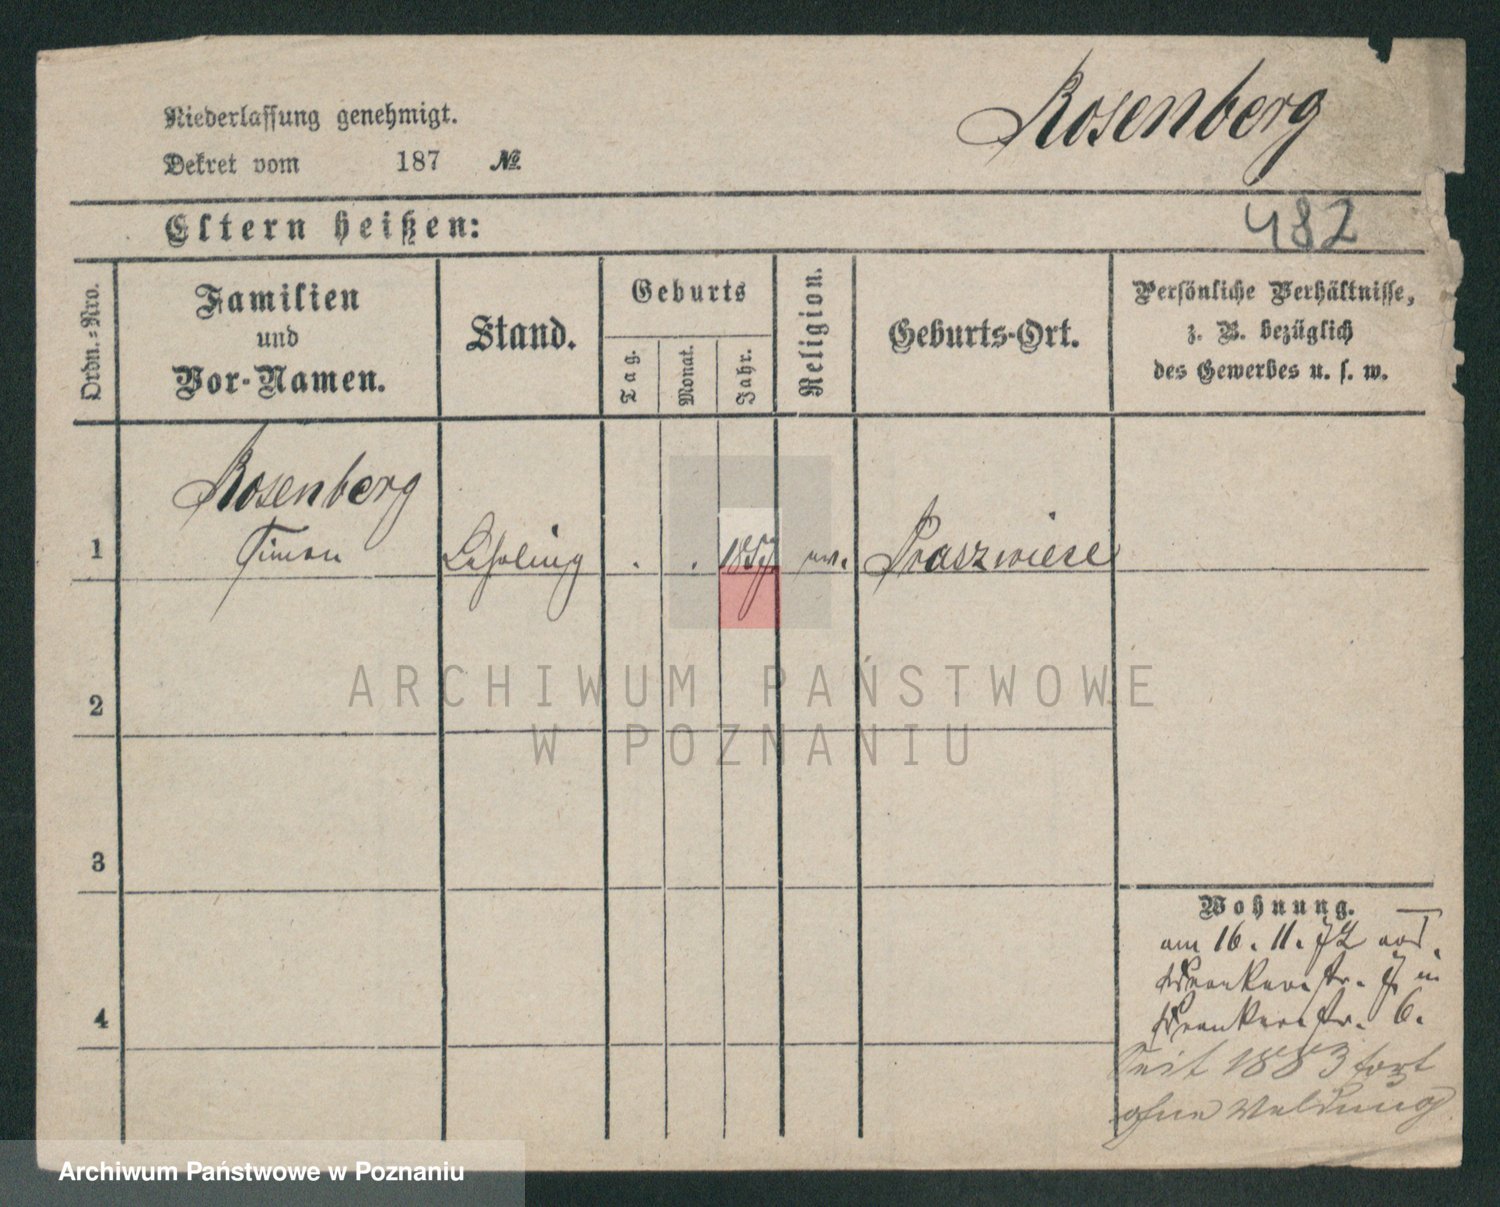 Rosenberg
Niederlassung genehmigt.
Dekret vom 187 №
482
Eltern heißen:
Ordn.-Nro.
Familien
und
Vor-Namen.
Stand.
Geburts
Tag.
Monat.
Jahr.
Religion.
Geburts-Ort.
Persönliche Verhältnisse,
z. B. bezüglich
des Gewerbes u. s. w.
Rosenberg
1 Simon Lehrling . . 1857.
2
3
4
Wohnung.
am 16. 11. 72
Krankenstr. 7 in
Krankenstr. 6.
Seit 1883 fort
ohne Meldung
ARCHIWUM PAŃSTWOWE
W POZNANIU
Archiwum Państwowe w Poznaniu